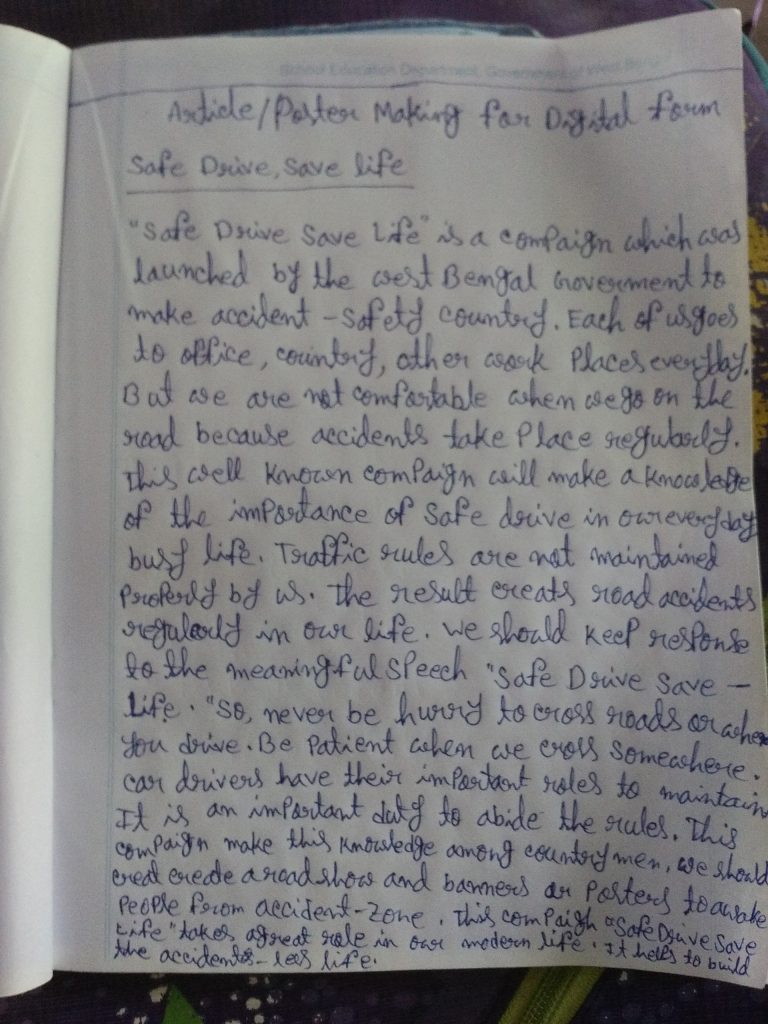 School Education Department, Government of West Bengal
Article/Poster Making for Digital form
Safe Drive, Save life
"Safe Drive Save Life" is a compaign which was
launched by the west Bengal Goverment to
make accident - safety country. Each of us goes
to office, country, other work places everyday.
But we are not comfortable when we go on the
road because accidents take place regularly.
This well known compaign will make a knowledge
of the importance of safe drive in our everyday
busy life. Traffic rules are not maintained
properly by us. The result creats road accidents
regularly in our life. We should keep response
to the meaningful speech "Safe Drive Save -
Life. "So, never be hurry to cross roads or when
you drive. Be patient when we cross somewhere.
car drivers have their important roles to maintain
It is an important duty to abide the rules. This
compaign make this knowledge among countrymen, we should
creat create a roadshow and banners or posters to awake
people from accident-zone. This compaign "Safe Drive Save
Life" takes a great role in our modern life. It helps to build
the accidents-less life.